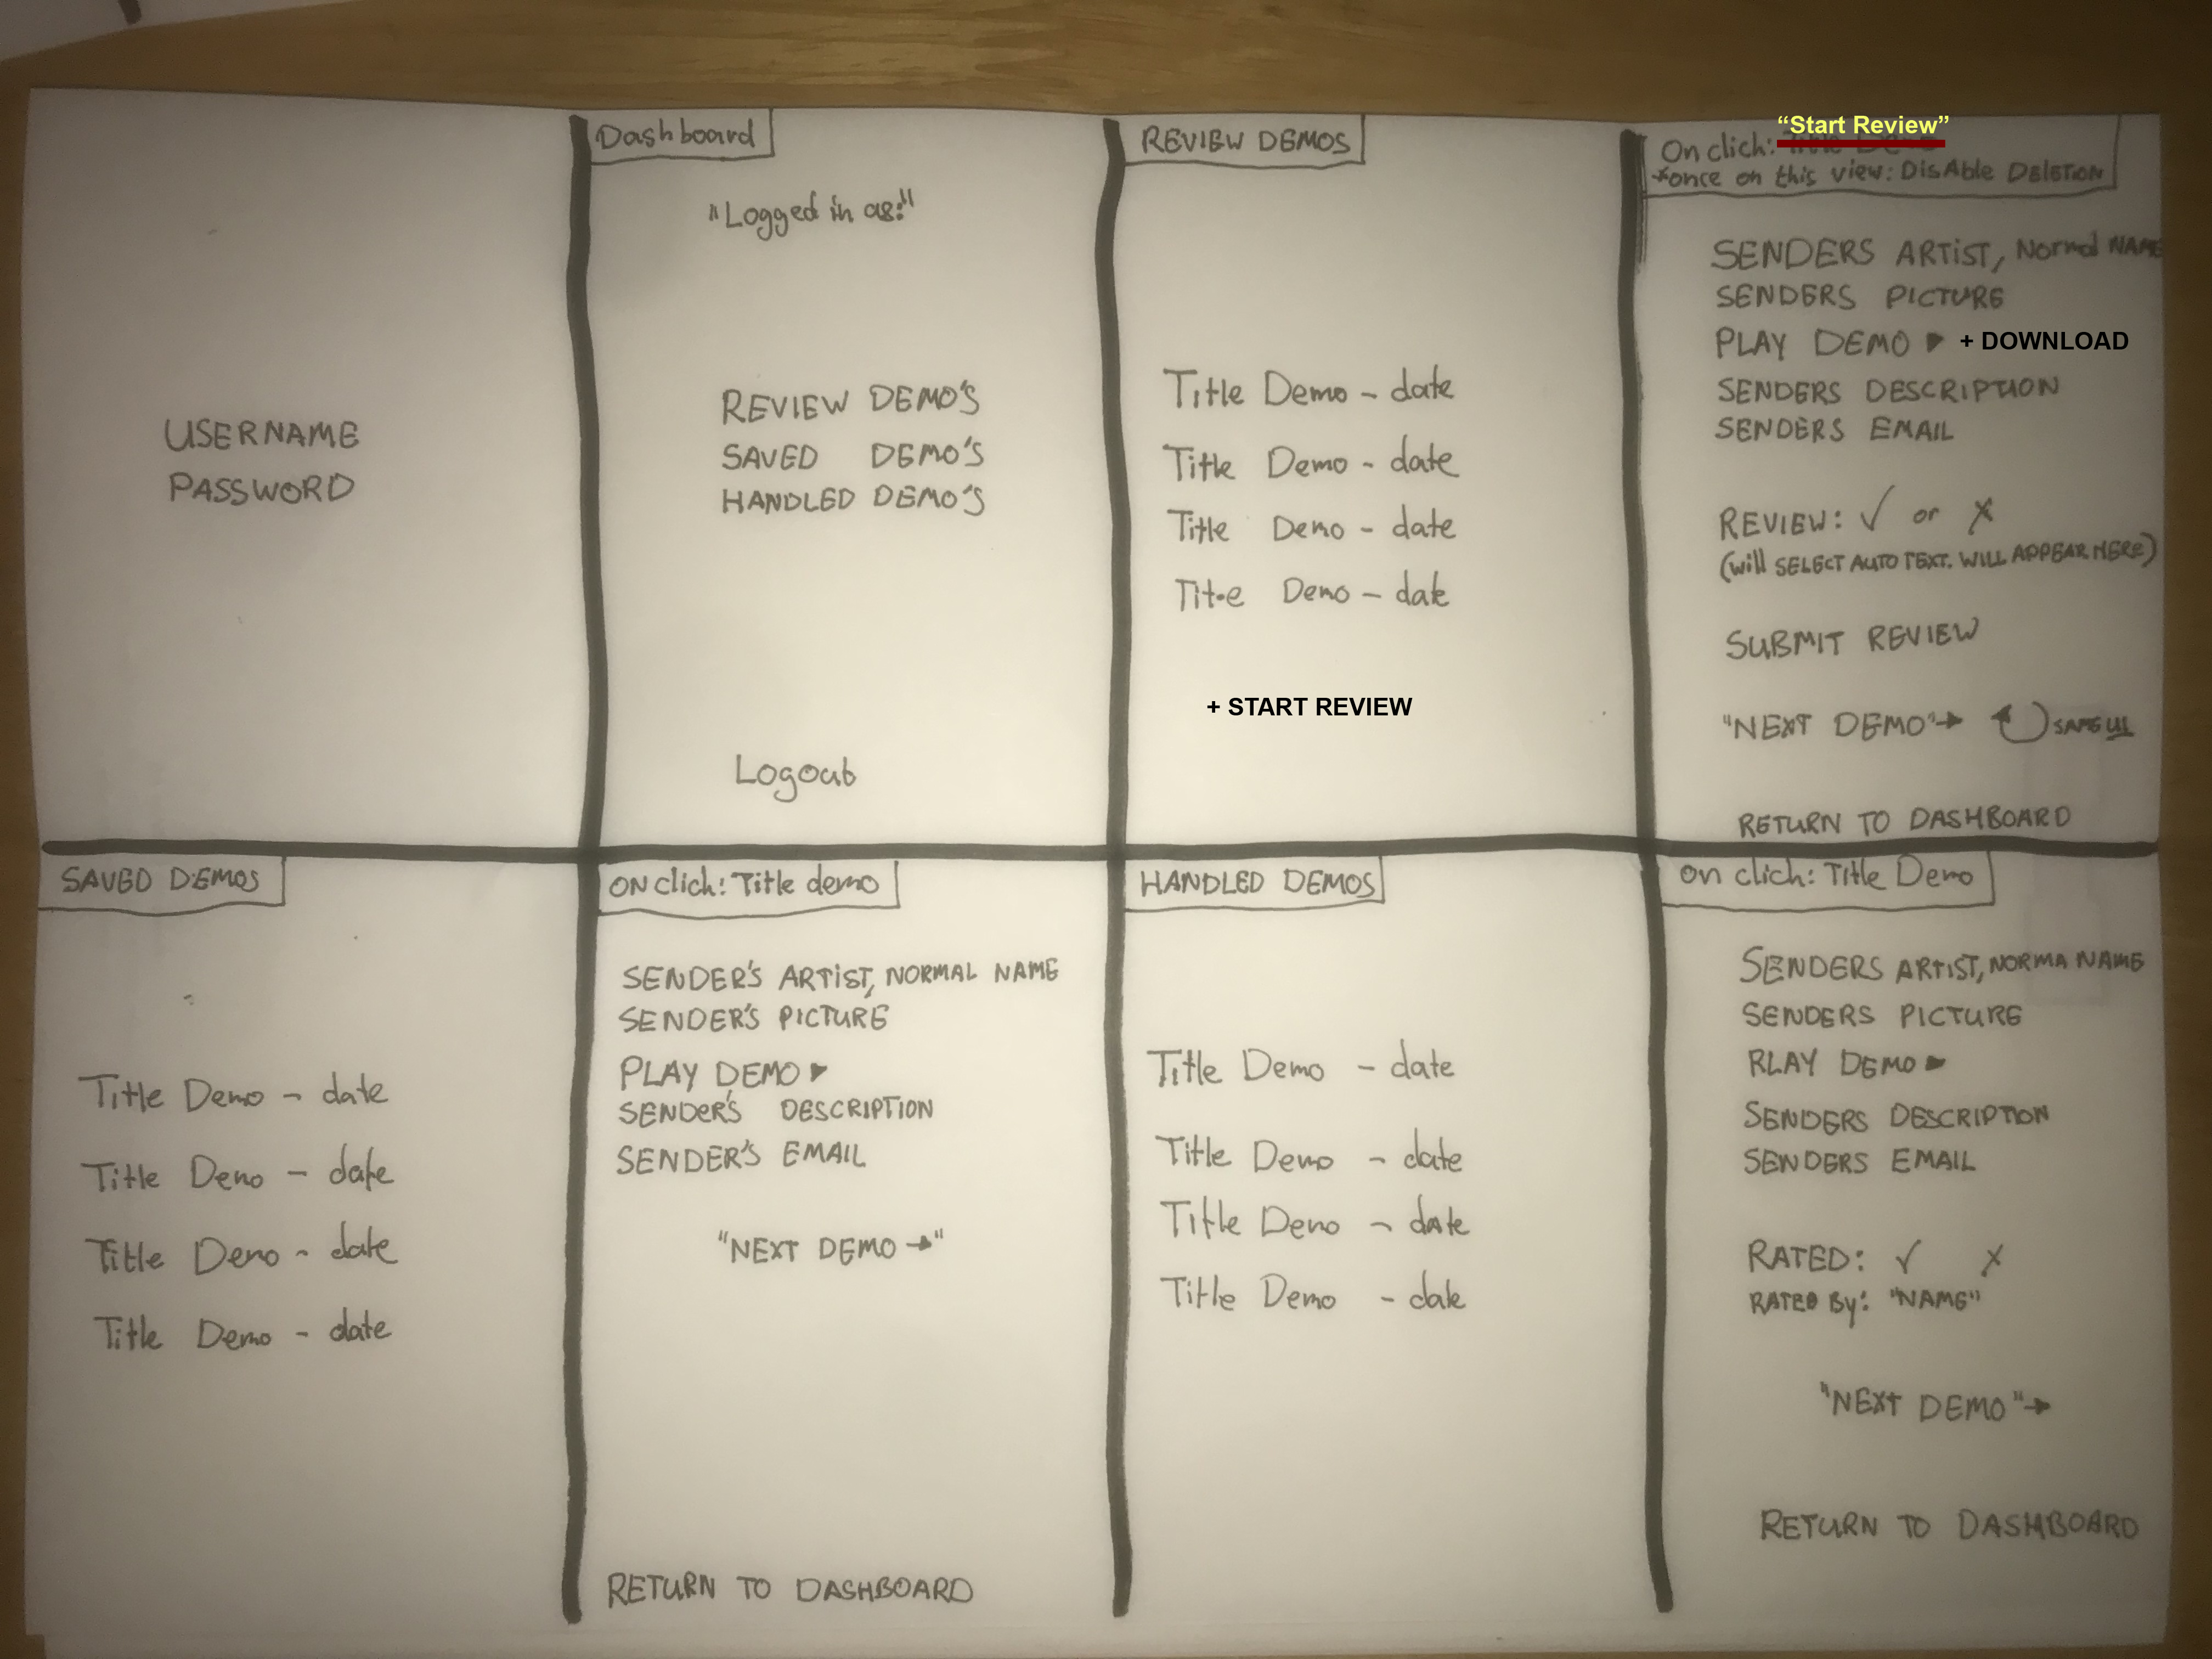 USERNAME
PASSWORD
Dashboard
"Logged in as:"
REVIEW DEMO'S
SAVED DEMO'S
HANDLED DEMO'S
Logout
REVIEW DEMOS
Title Demo - date
Title Demo - date
Title Demo - date
Title Demo - date
+ START REVIEW
“Start Review”
On click:
*once on this view: DisAble DELETION
SENDERS ARTiST, Normal NAME
SENDERS PICTURE
PLAY DEMO ▶ + DOWNLOAD
SENDERS DESCRIPTION
SENDERS EMAIL
REVIEW: ✓ or ✗
(will SELECT AUTO TEXT. WILL APPEAR HERE)
SUBMIT REVIEW
"NEXT DEMO"→ SAME UI
RETURN TO DASHBOARD
SAVED DEMOS
Title Demo - date
Title Demo - date
Title Demo - date
Title Demo - date
ON click: Title demo
SENDER'S ARTiST, NORMAL NAME
SENDER'S PICTURE
PLAY DEMO ▶
SENDER'S DESCRIPTION
SENDER'S EMAIL
"NEXT DEMO →"
RETURN TO DASHBOARD
HANDLED DEMOS
Title Demo - date
Title Demo - date
Title Demo - date
Title Demo - date
on click: Title Demo
SENDERS ARTIST, NORMA NAME
SENDERS PICTURE
PLAY DEMO ▶
SENDERS DESCRIPTION
SENDERS EMAIL
RATED: ✓ ✗
RATED By: "NAME"
"NEXT DEMO"→
RETURN TO DASHBOARD